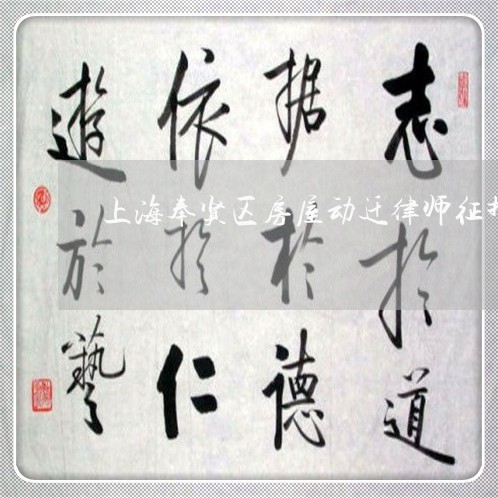 志扵道
据扵德
依扵仁
遊於藝
上海奉贤区房屋动迁律师征